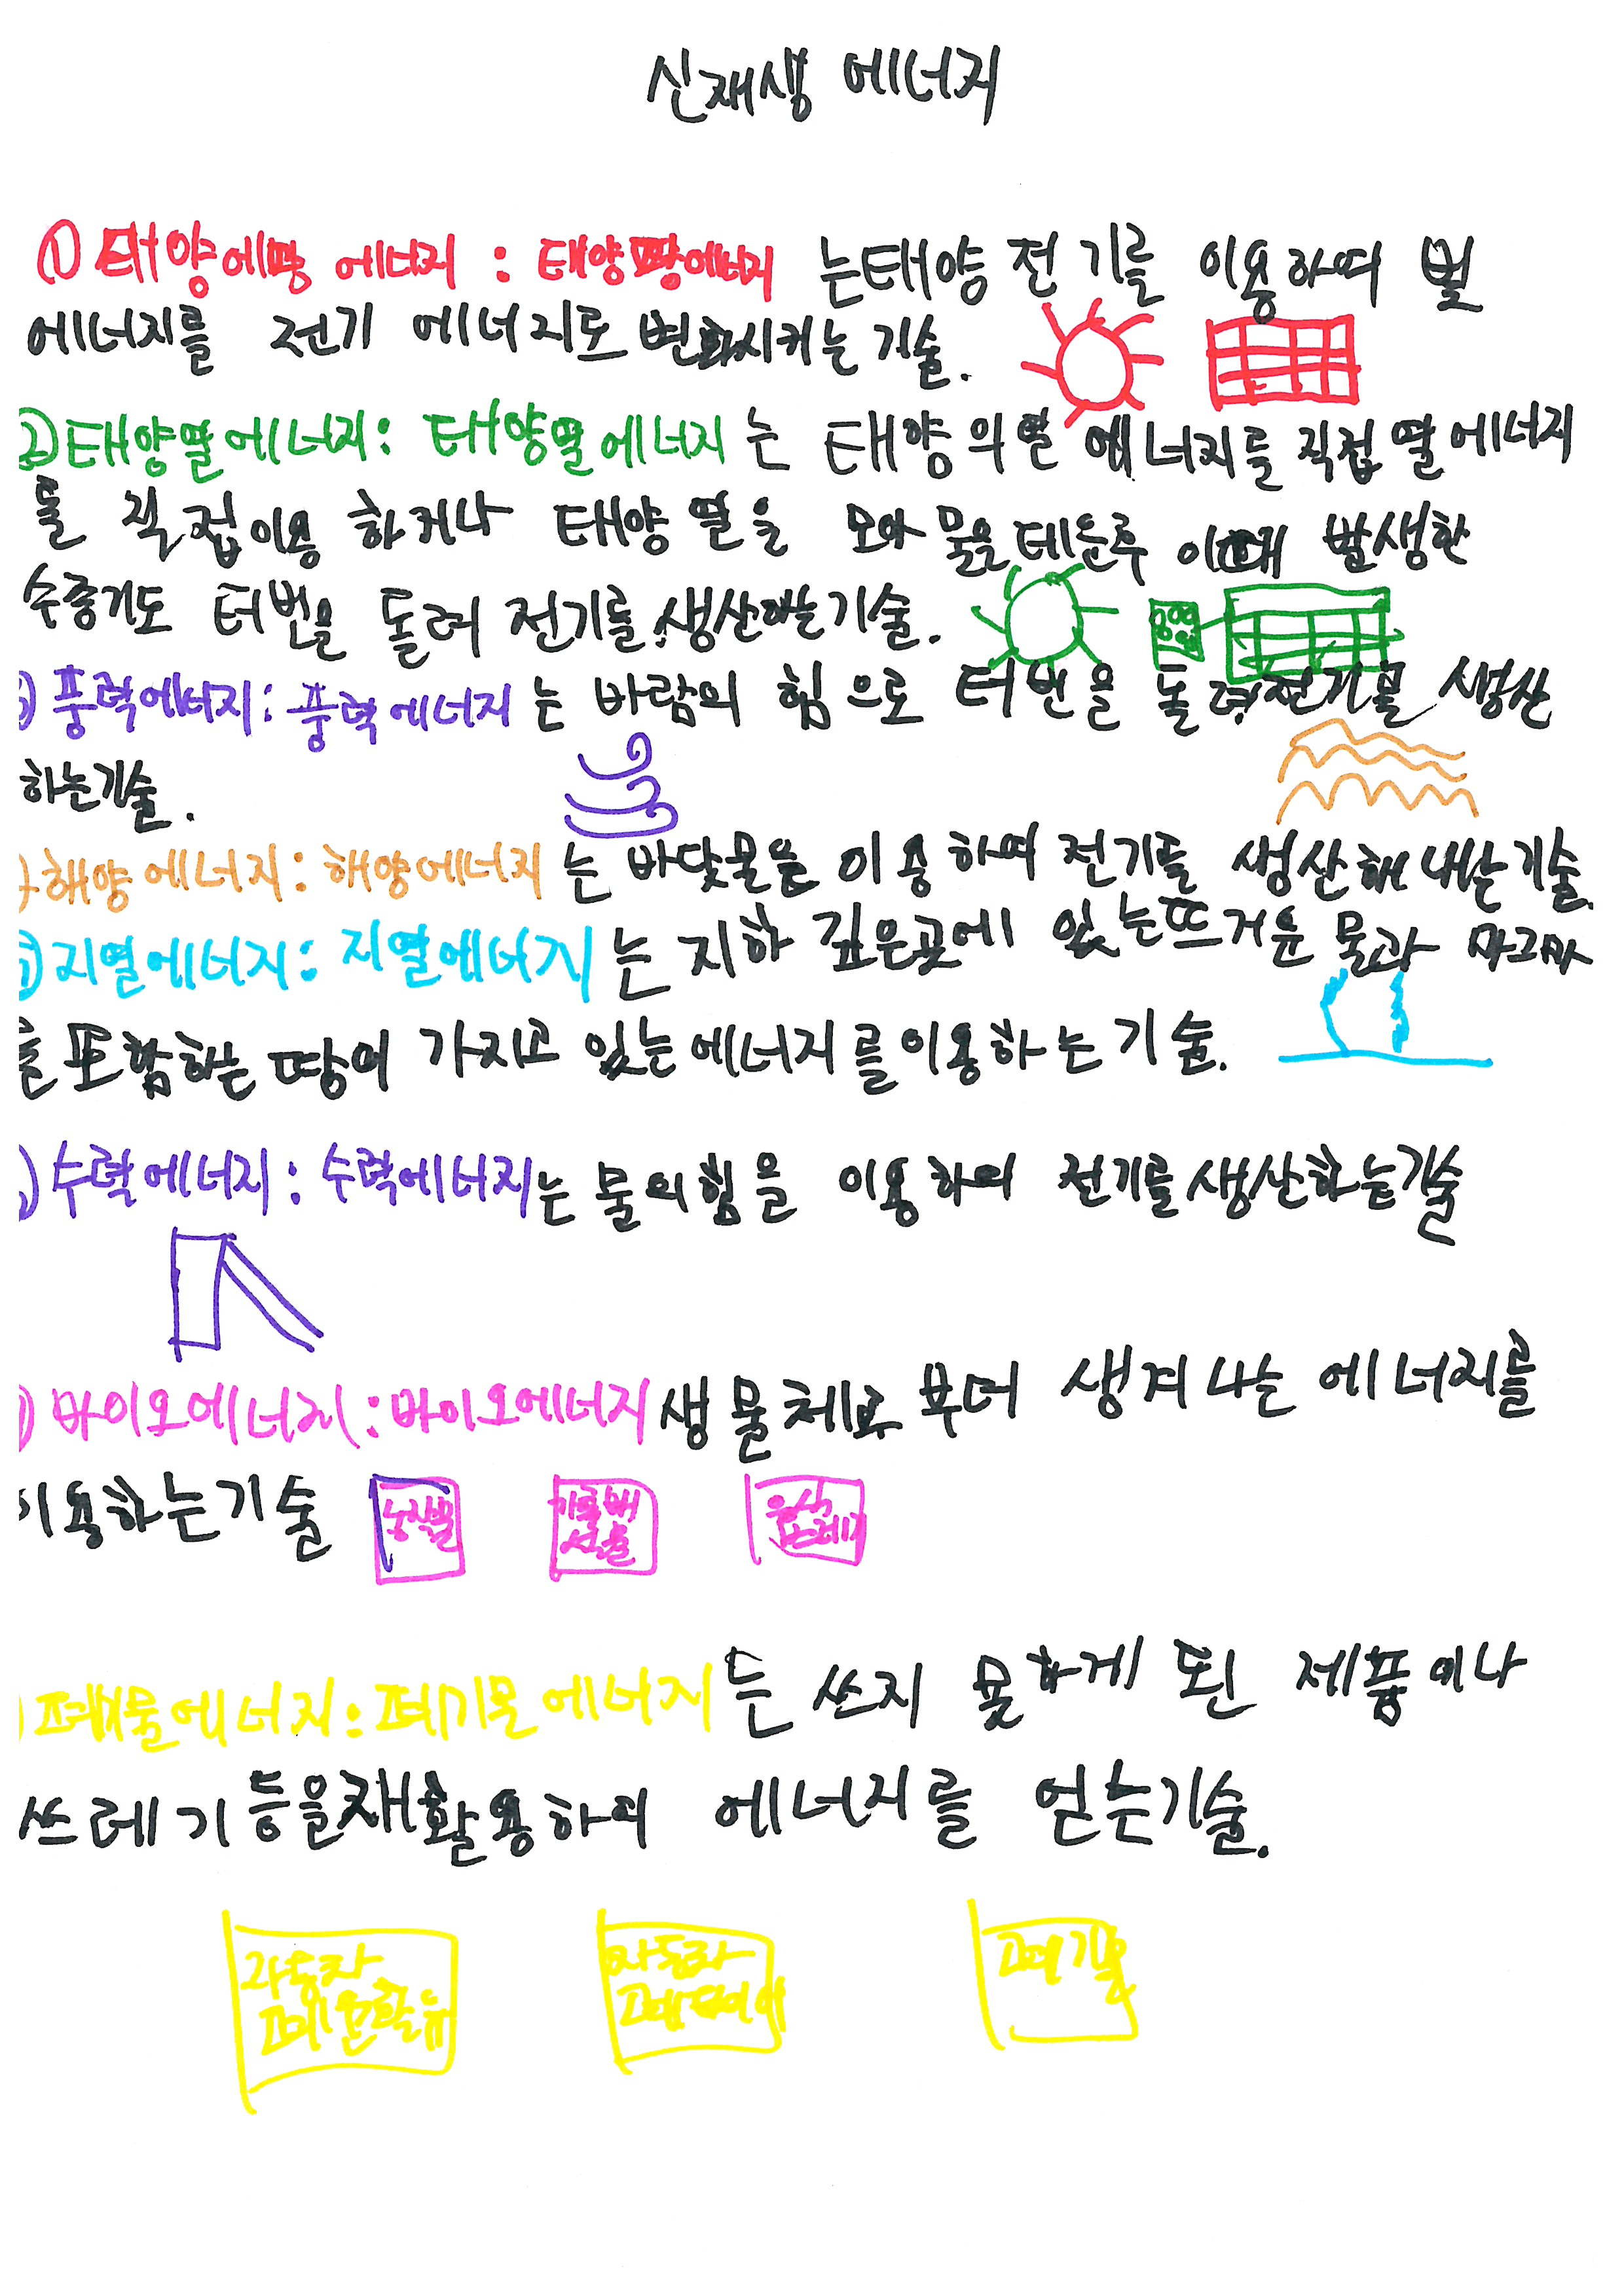 신재생 에너지
① 태양에광 에너지 : 태양광에너지 는태양 전 기를 이용하여 빛
에너지를 전기 에너지로 변화시키는 기술.
2)태양열에너지: 태양열에너지 는 태양의열 에너지를 직접 열에너지
를 직접이용 하거나 태양 열을 모아 물을 데운후 이때 발생한
수증기로 터번을 돌려 전기를 생산하는기술.
) 풍력에너지: 풍력에너지 는 바람의 힘으로 터번을 돌려전기를 생산
하는기술.
해양에너지: 해양에너지 는 바닷물을 이용하여 전기를 생산해 내는기술.
)지열에너지: 지열에너지 는 지하 깊은곳에 있는뜨거운 물과 마그마
를 포함하는 땅이 가지고 있는에너지를이용하는기술.
)수력에너지: 수력에너지는 물의힘을 이용하여 전기를생산하는기술
)바이오에너지:바이오에너지 생물체로 부터 생겨나는 에너지를
이용하는기술
농작물
가축배
설물
음식
쓰레기
)폐기물에너지: 폐기물에너지 는 쓰지 못하게 된 제품이나
쓰레기 등을재활용하여 에너지를 얻는기술.
자동차
폐윤활유
자동차
폐타이어
폐기물